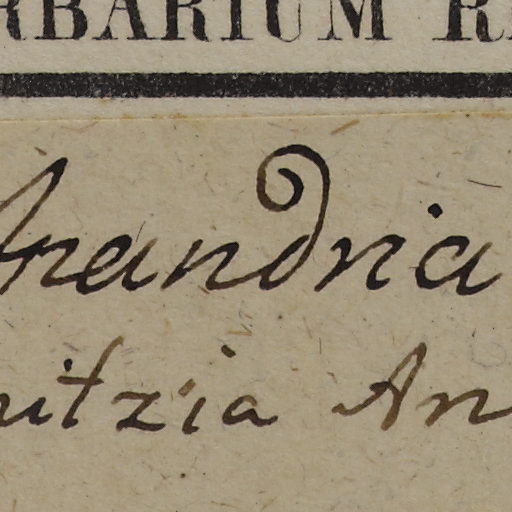 RBARIUM R
randria
nitzia An